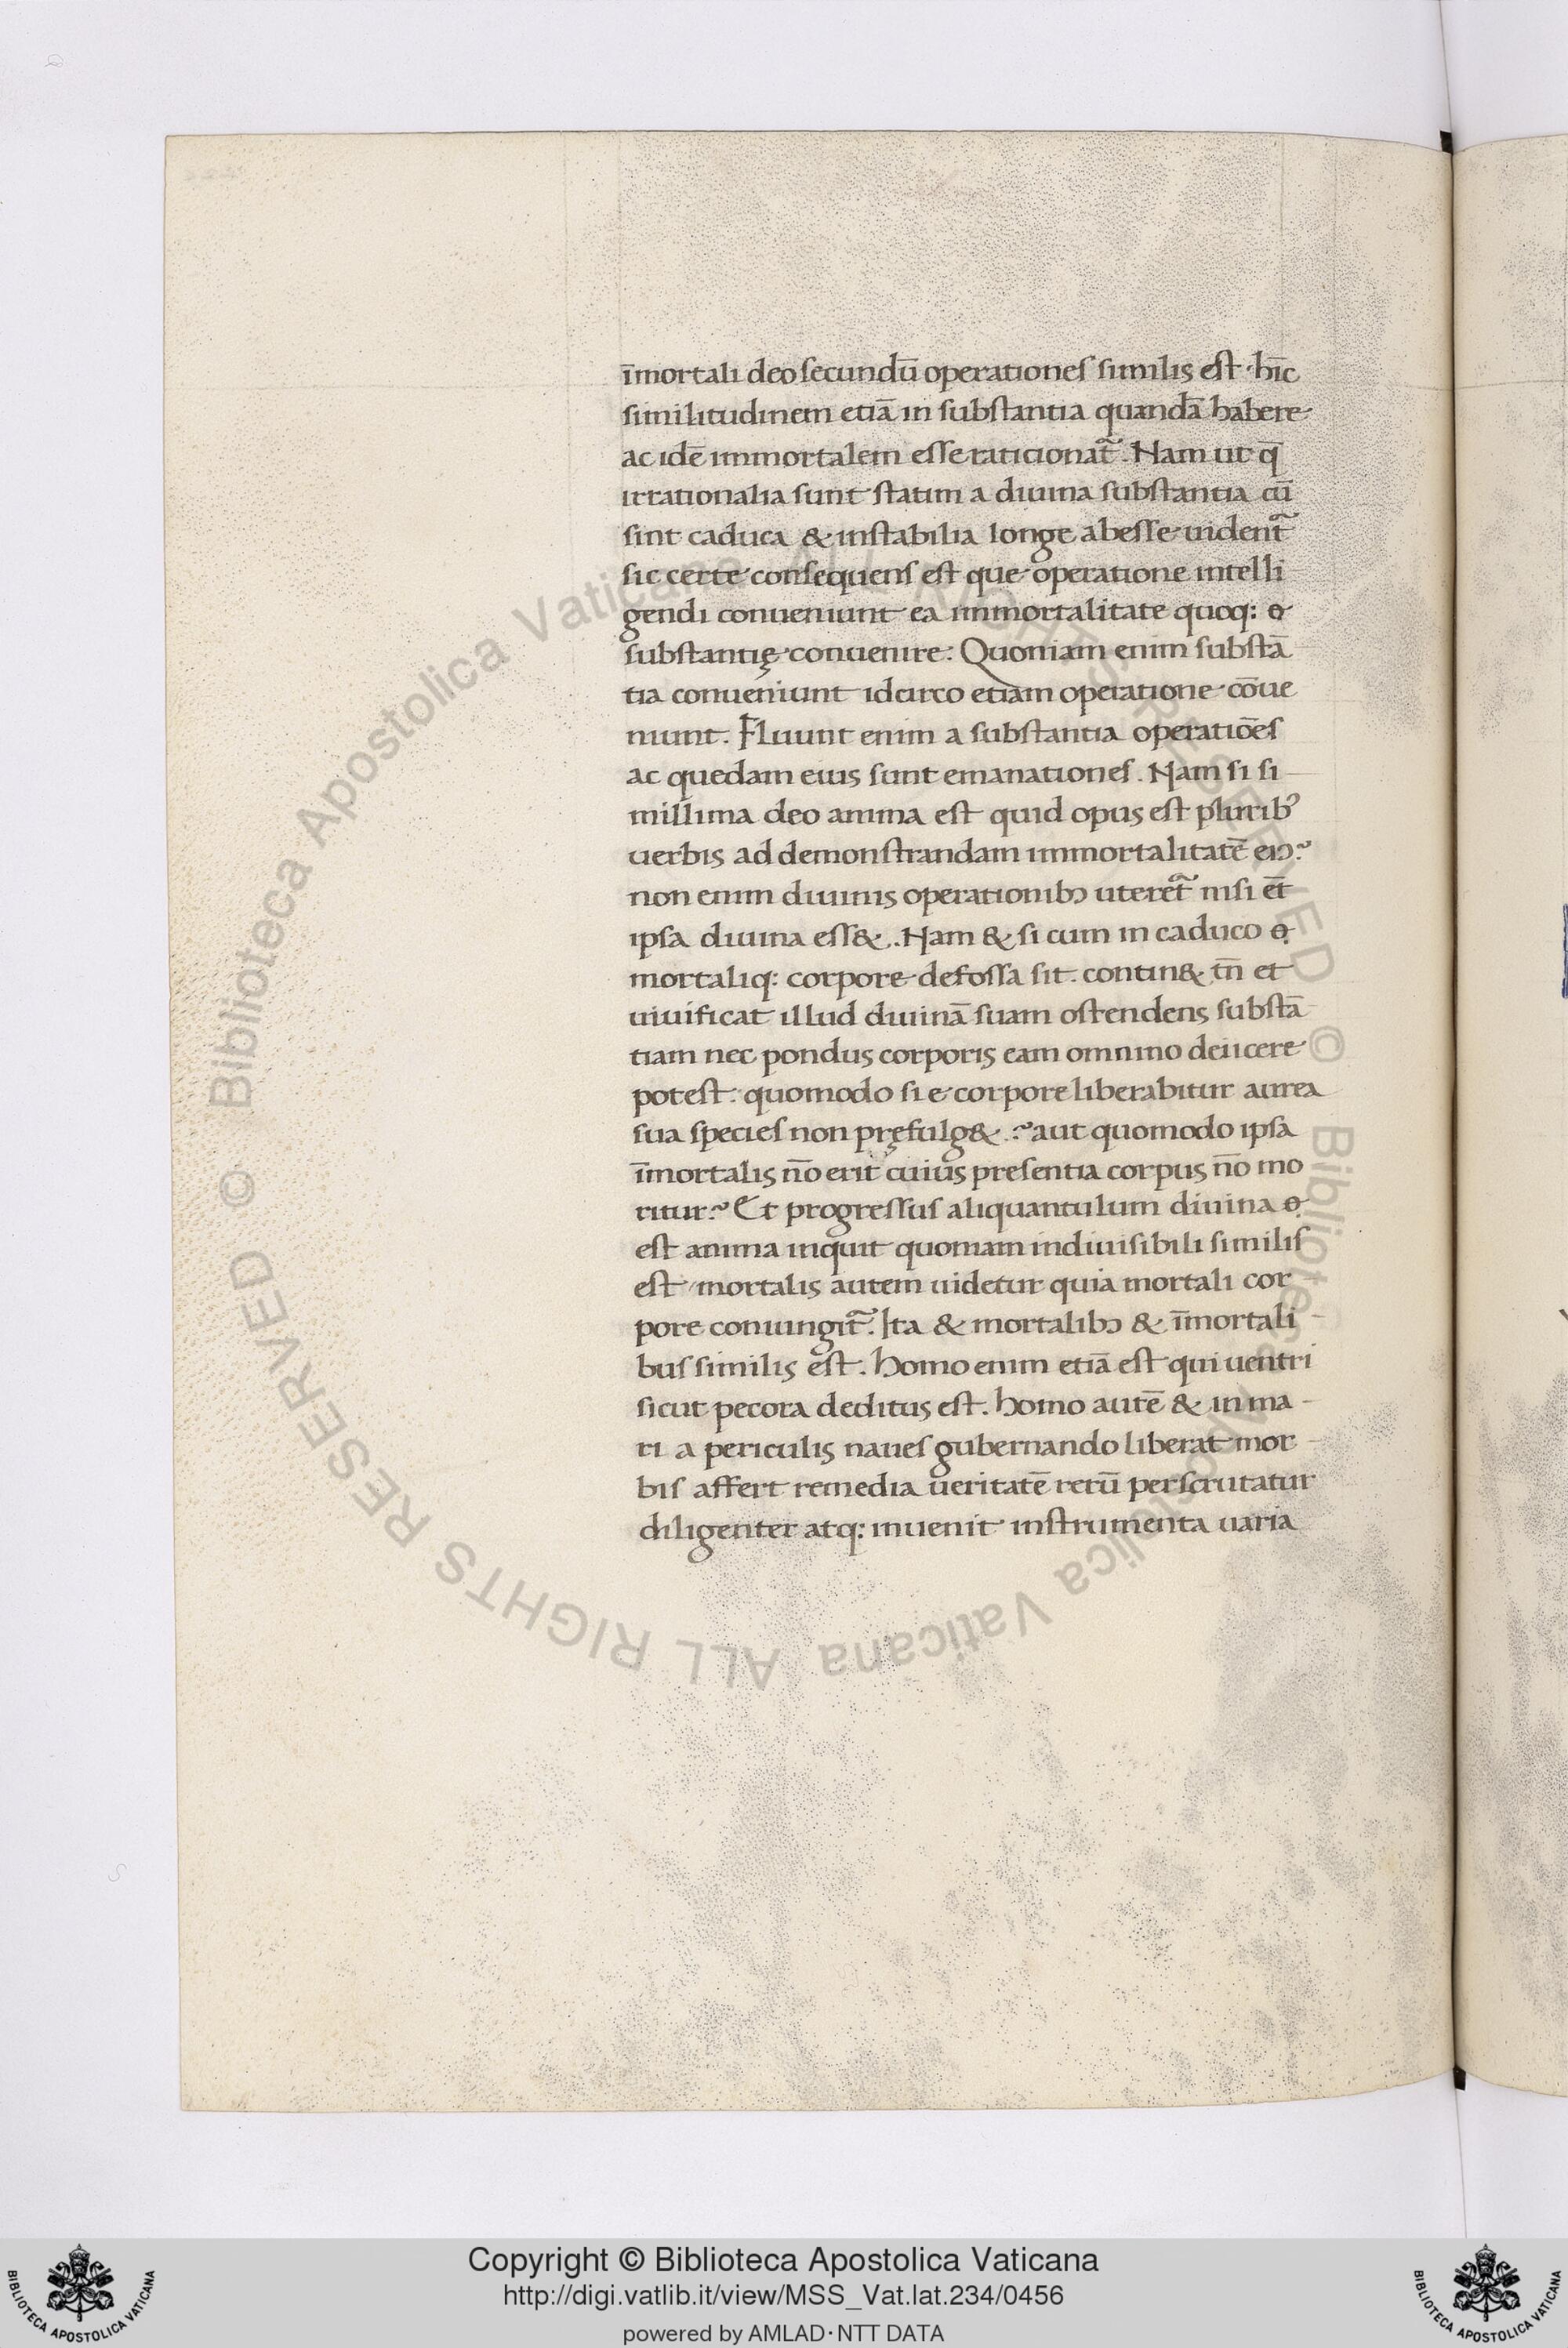 īmortali deo secundū operationes similis est. hīc
similitudinem etiā in substantia quandā habere
ac idē immortalem esse raticionat᷉. Nam ut q̄
irrationalia sunt statim a diuina substantia cū
sint caduca & instabilia longe abesse uident᷉
sic certe consequens est que operatione intelli
gendi conueniunt ea immortalitate quoq:
substantię conuenire. Quoniam enim substā
tia conueniunt idcirco etiam operatione cōue
niunt. Fluunt enim a substantia operatiōes
ac quedam eius sunt emanationes. Nam si si
millima deo anima est quid opus est plurib᾿
uerbis ad demonstrandam immortalitatē eiꝰ?
non enim diuinis operationibꝰ uteret᷉ nisi et̄
ipsa diuina ess&. Nam & si cum in caduco
mortaliq: corpore defossa sit. contin& tn̄ et
uiuificat illud diuinā suam ostendens substā
tiam nec pondus corporis eam omnino deiicere
potest. quomodo si e corpore liberabitur aurea
sua species non pręfulg&.? aut quomodo ipsa
īmortalis nō erit cuius presentia corpus nō mo
ritur? Et progressus aliquantulum diuina
est anima inquit quoniam indiuisibili similis
est mortalis autem uidetur quia mortali cor
pore coniungit᷉. Ita & mortalibꝰ & īmortali
bus similis est. homo enim etiā est qui uentri
sicut pecora deditus est. homo autē & in ma-
ri a periculis naues gubernando liberat mor
bis affert remedia ueritatē rerū perscrutatur
diligenter atq: inuenit instrumenta uaria
© Biblioteca Apostolica Vaticana ALL RIGHTS RESERVED © Biblioteca Apostolica Vaticana ALL RIGHTS RESERVED
Copyright © Biblioteca Apostolica Vaticana
http://digi.vatlib.it/view/MSS_Vat.lat.234/0456
powered by AMLAD·NTT DATA
BIBLIOTECA APOSTOLICA VATICANA
BIBLIOTECA APOSTOLICA VATICANA